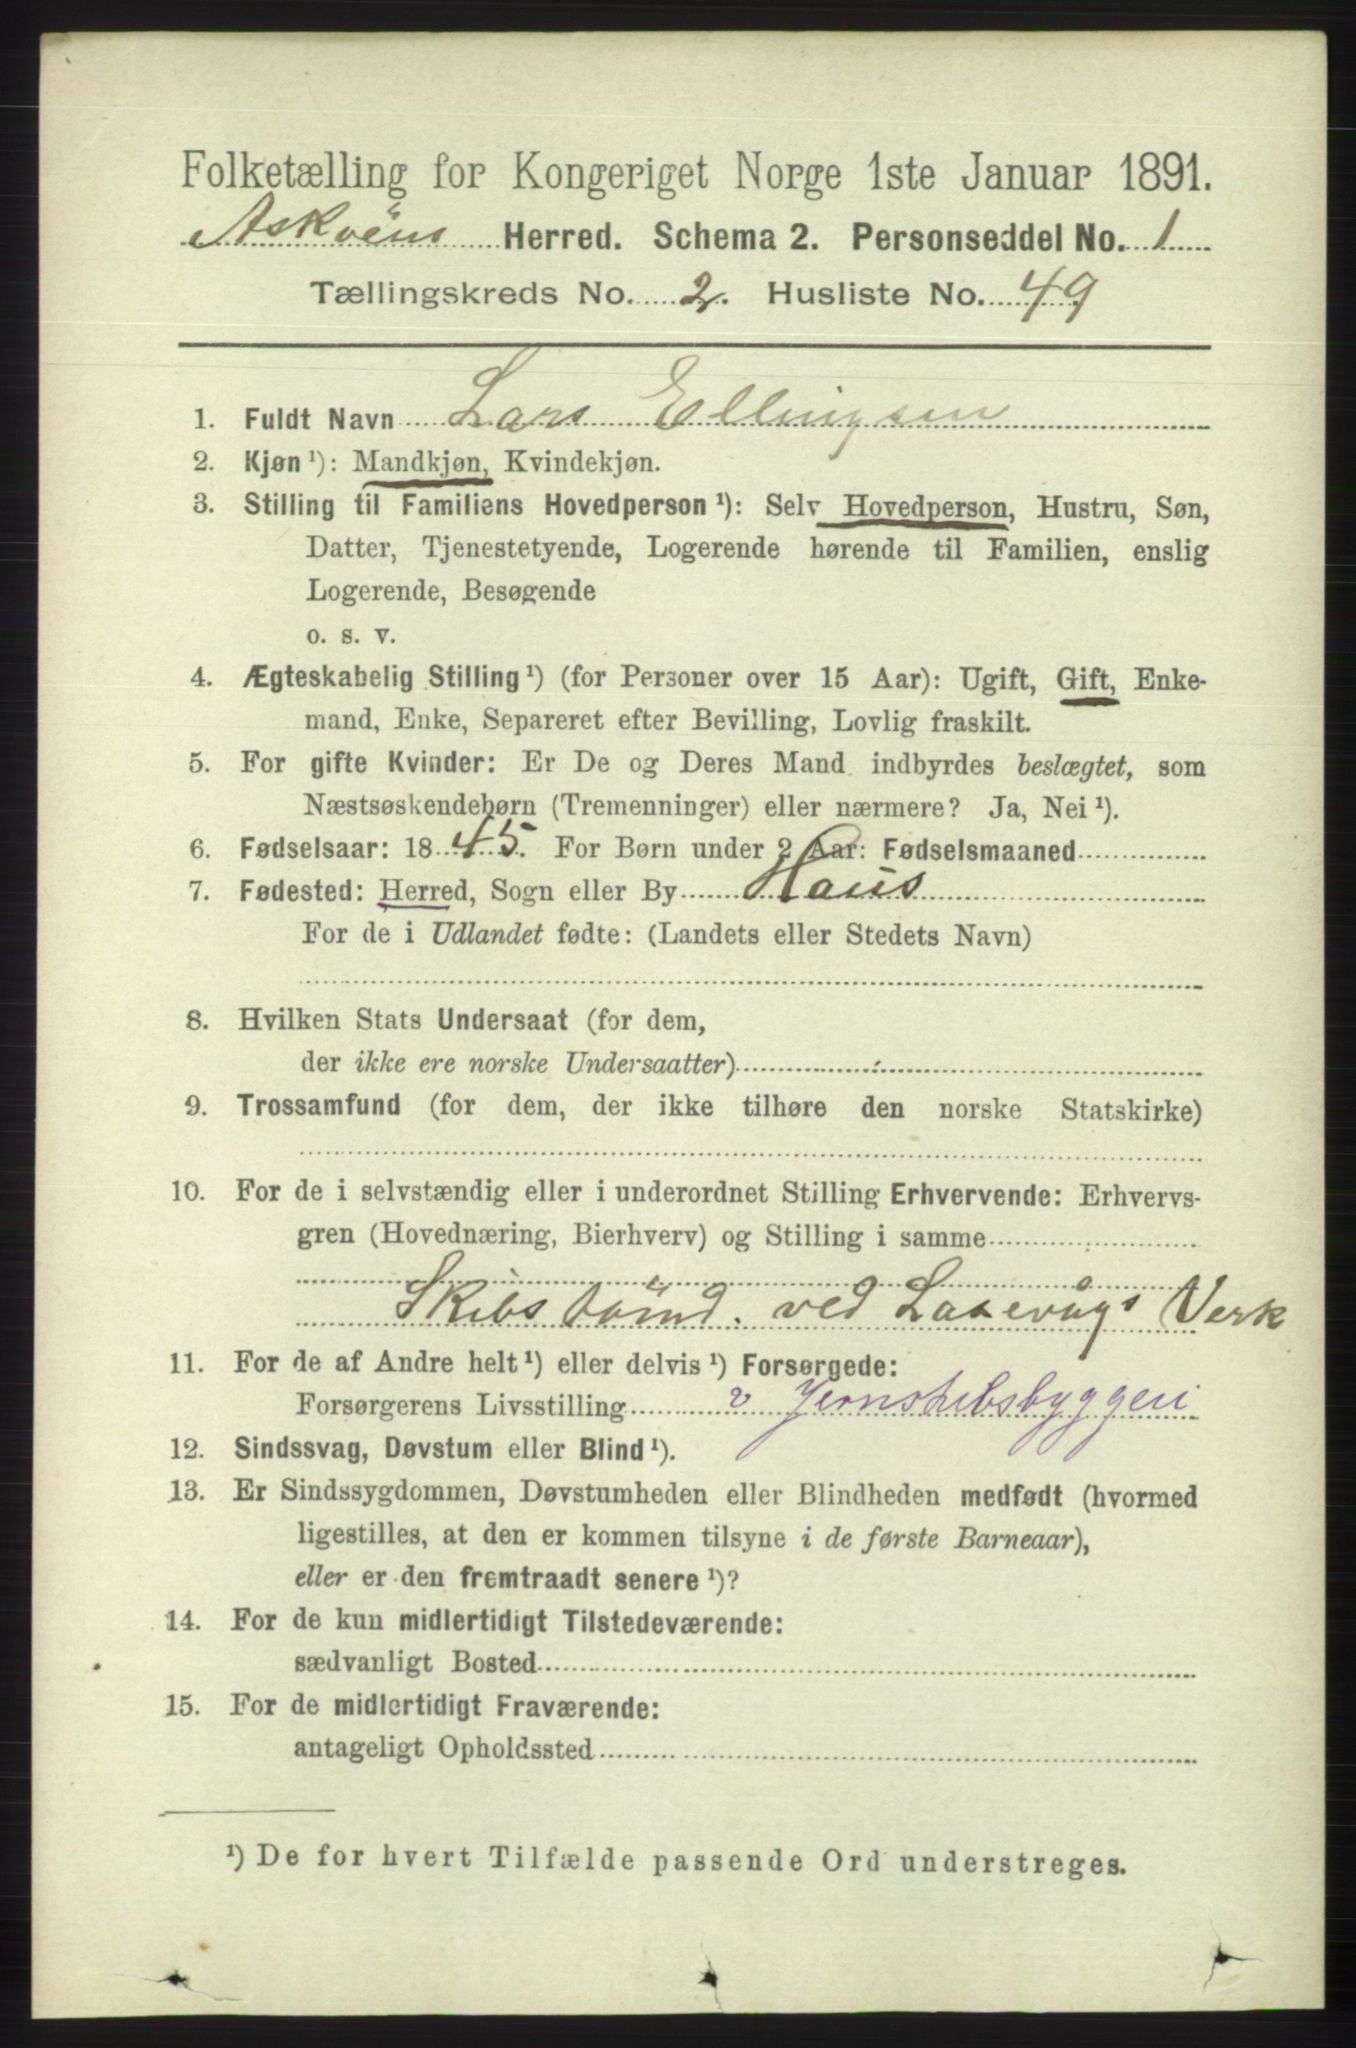 Folketælling for Kongeriget Norge 1ste Januar 1891.
Askvöens Herred. Schema 2. Personseddel No. 1
Tællingskreds No. 2. Husliste No. 49
1. Fuldt Navn Lars Ellingsen
2. Kjøn ¹): Mandkjøn, Kvindekjøn.
3. Stilling til Familiens Hovedperson ¹): Selv Hovedperson, Hustru, Søn,
Datter, Tjenestetyende, Logerende hørende til Familien, enslig
Logerende, Besøgende
o. s. v.
4. Ægteskabelig Stilling ¹) (for Personer over 15 Aar): Ugift, Gift, Enke-
mand, Enke, Separeret efter Bevilling, Lovlig fraskilt.
5. For gifte Kvinder: Er De og Deres Mand indbyrdes beslægtet, som
Næstsøskendebørn (Tremenninger) eller nærmere? Ja, Nei ¹).
6. Fødselsaar: 1845. For Børn under 2 Aar: Fødselsmaaned
7. Fødested: Herred, Sogn eller By Haus
For de i Udlandet fødte: (Landets eller Stedets Navn)
8. Hvilken Stats Undersaat (for dem,
der ikke ere norske Undersaatter)
9. Trossamfund (for dem, der ikke tilhøre den norske Statskirke)
10. For de i selvstændig eller i underordnet Stilling Erhvervende: Erhvervs-
gren (Hovednæring, Bierhverv) og Stilling i samme
Skibstömd. ved Laxevågs Verk
11. For de af Andre helt ¹) eller delvis ¹) Forsørgede:
Forsørgerens Livsstilling v Jernskibsbyggeri
12. Sindssvag, Døvstum eller Blind ¹).
13. Er Sindssygdommen, Døvstumheden eller Blindheden medfødt (hvormed
ligestilles, at den er kommen tilsyne i de første Barneaar),
eller er den fremtraadt senere ¹)?
14. For de kun midlertidigt Tilstedeværende:
sædvanligt Bosted
15. For de midlertidigt Fraværende:
antageligt Opholdssted
¹) De for hvert Tilfælde passende Ord understreges.